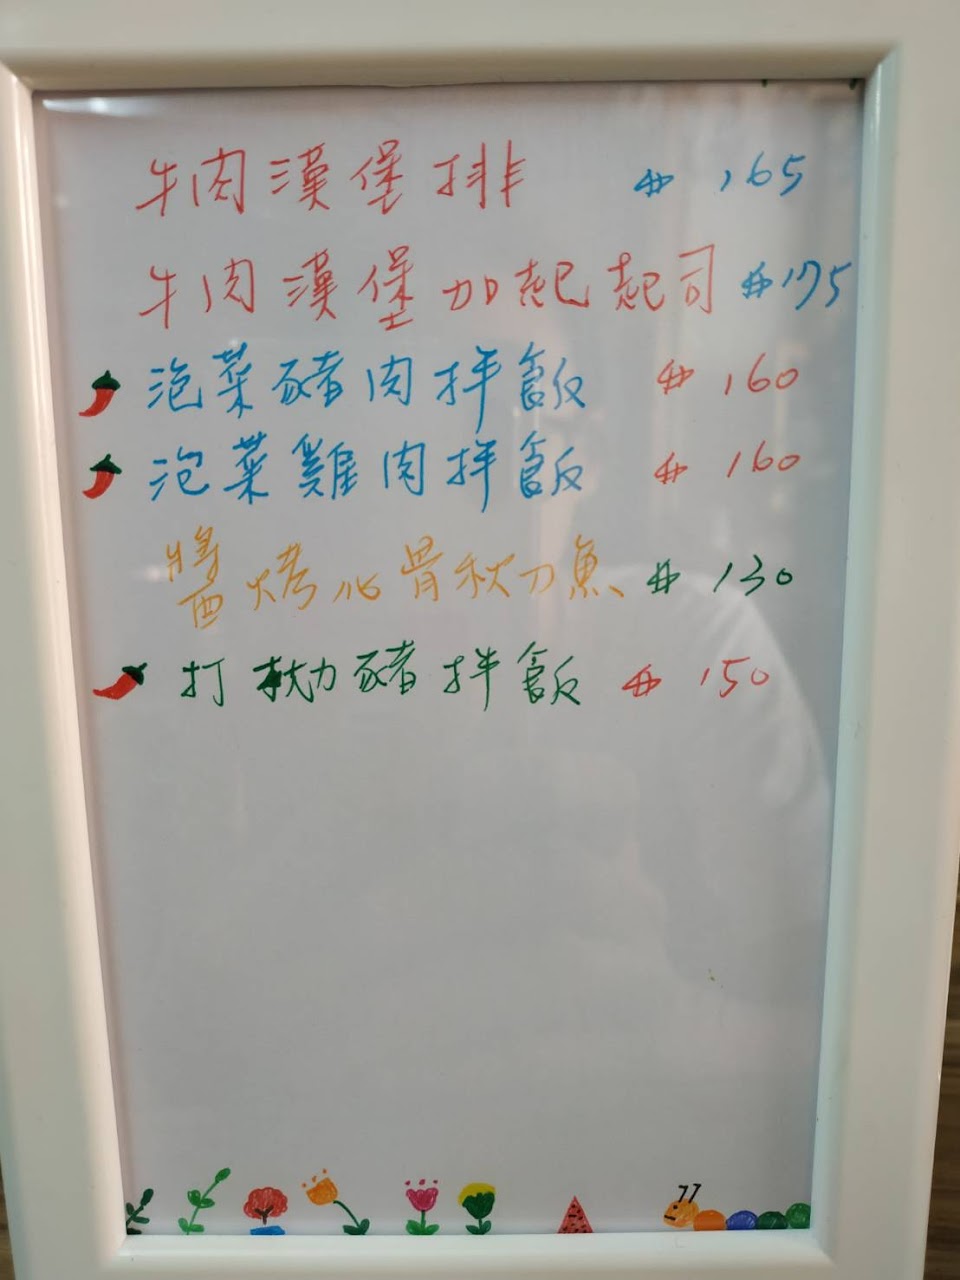 牛肉漢堡排 # 165
牛肉漢堡加起起司 # 175
泡菜豬肉拌飯 # 160
泡菜雞肉拌飯 # 160
醬烤心骨秋刀魚 # 130
打拋豬拌飯 # 150